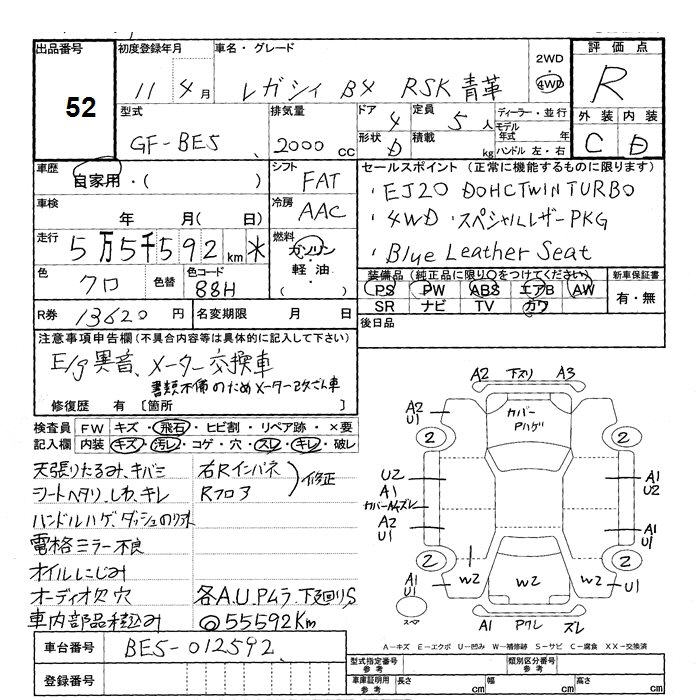 出品番号
52
初度登録年月
11 4月
車名・グレード
レガシィ B4 RSK 青革
2WD
・
4WD
評価点
R
外装 内装
C D
型式
GF-BE5
排気量
2000 cc
ドア
4
定員
5人
形状
D
積載
kg
ディーラー・並行
モデル
年式 年
ハンドル 左・右
車歴
自家用・( )
シフト
FAT
車検
年 月( 日)
冷房
AAC
走行
5万5千592km ✕
燃料
ガソリン
軽油
・( )
色
クロ
色替
色コード
88H
セールスポイント (正常に機能するものに限ります)
・EJ20 DOHC TWIN TURBO
・4WD ・スペシャルレザーPKG
・Blue Leather Seat
装備品(純正品に限り○をつけてください)
新車保証書
PS PW ABS エアB AW
SR ナビ TV カワ
有・無
R券 13620円
名変期限 月 日
後日品
注意事項申告欄(不具合内容等は具体的に記入して下さい)
E/g異音、メーター交換車
書類不備のためメーター改ざん車
修復歴 有 〔箇所 〕
検査員 FW キズ・飛石・ヒビ割・リペア跡・×要
記入欄 内装 キズ・汚レ・コゲ・穴・スレ・キレ・破レ
天張りたるみ、キバミ
シートヘタリ、しわ、キレ
ハンドルハゲ、ダッシュのり水
電格ミラー不良
オイルにじみ
オーディオ欠 穴
車内部品積込み
右Rインパネ
Rフロア
修正
各A.U.Pムラ、下廻りS
@55592Km
A2 下スリ A3
カバー
Pハゲ
A2
U1
2
2
U2
A1
カバーAムズレ
A2
U1
A1
U2
A1
U1
2
2
W2
W2
W2
A1
U1
U1
スペア
A1 Pワレ ズレ
A―キズ E―エクボ U―凹み W―補修跡 S―サビ C―腐食 XX―交換済
車台番号
BE5-012592
登録番号
型式指定番号
参考
類別区分番号
参考
車庫証明用
参考
長さ cm
幅 cm
高さ cm